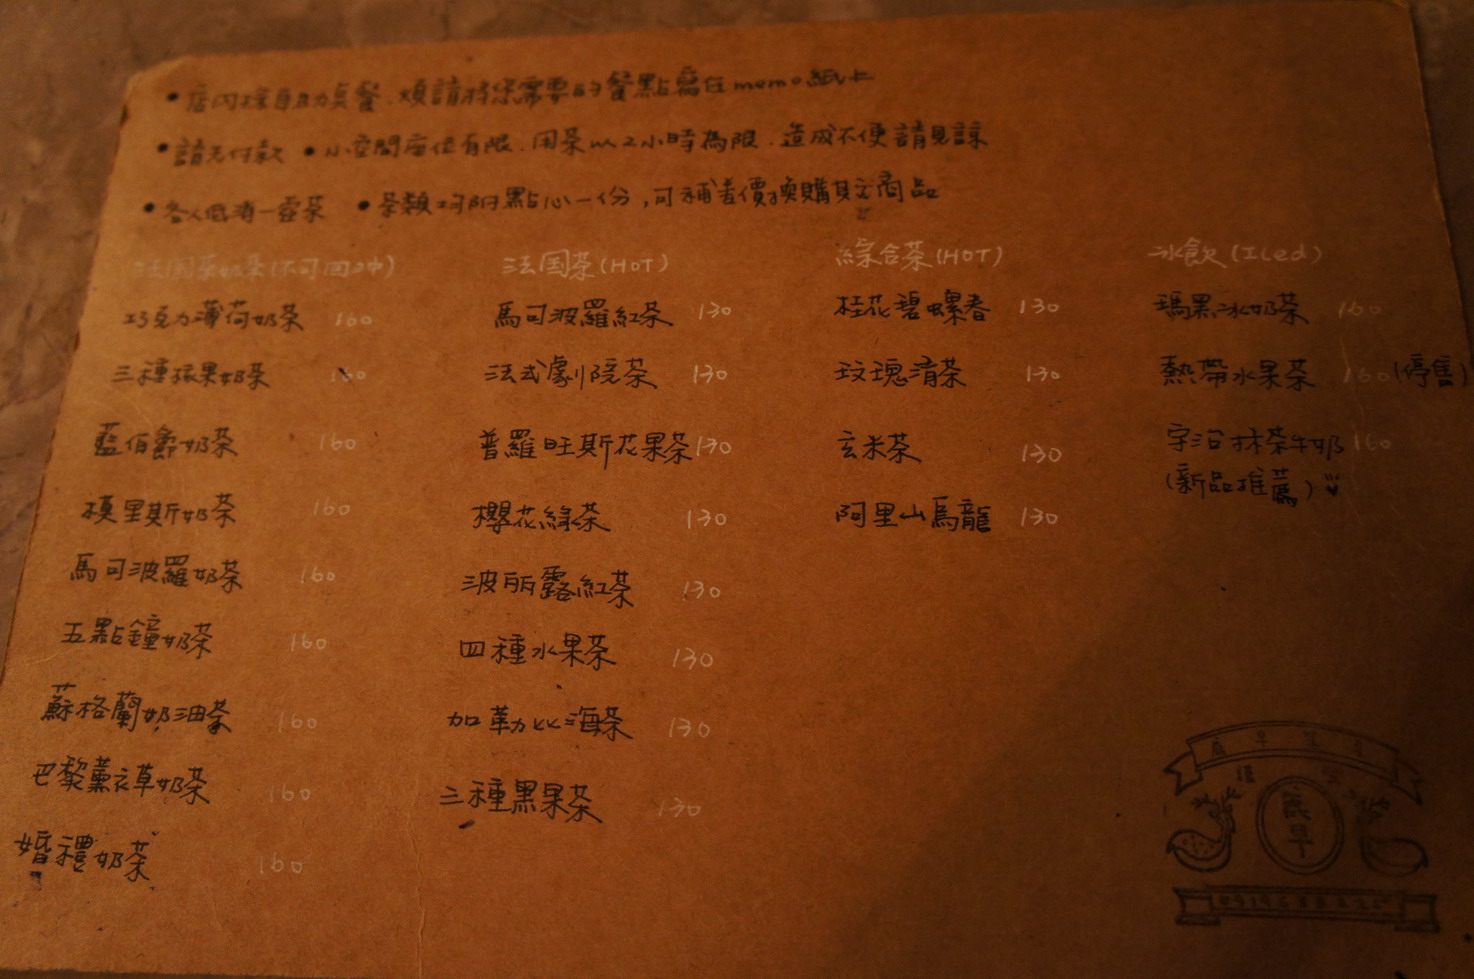 •店內採自助點餐、煩請將您需要的餐點寫在memo紙上
•請先付款 •小空間座位有限、用茶以2小時為限、造成不便請見諒
•每人低消一壺茶 •茶類均附點心一份,可補差價換購其它商品
法國茶奶茶(不可回沖)
巧克力薄荷奶茶 160
三種核果奶茶 160
藍伯爵奶茶 160
模里斯奶茶 160
馬可波羅奶茶 160
五點鐘奶茶 160
蘇格蘭奶油茶 160
巴黎薰衣草奶茶 160
婚禮奶茶 160
法国茶(HOT)
馬可波羅紅茶 130
法式劇院茶 130
普羅旺斯花果茶 130
櫻花綠茶 130
波麗露紅茶 130
四種水果茶 130
加勒比海茶 130
三種黑果茶 130
綜合茶(HOT)
桂花碧螺春 130
玫瑰清茶 130
玄米茶 130
阿里山烏龍 130
冰飲(Iced)
瑪黑冰奶茶 160
熱帶水果茶 160(停售)
宇治抹茶牛奶 160
(新品推薦)